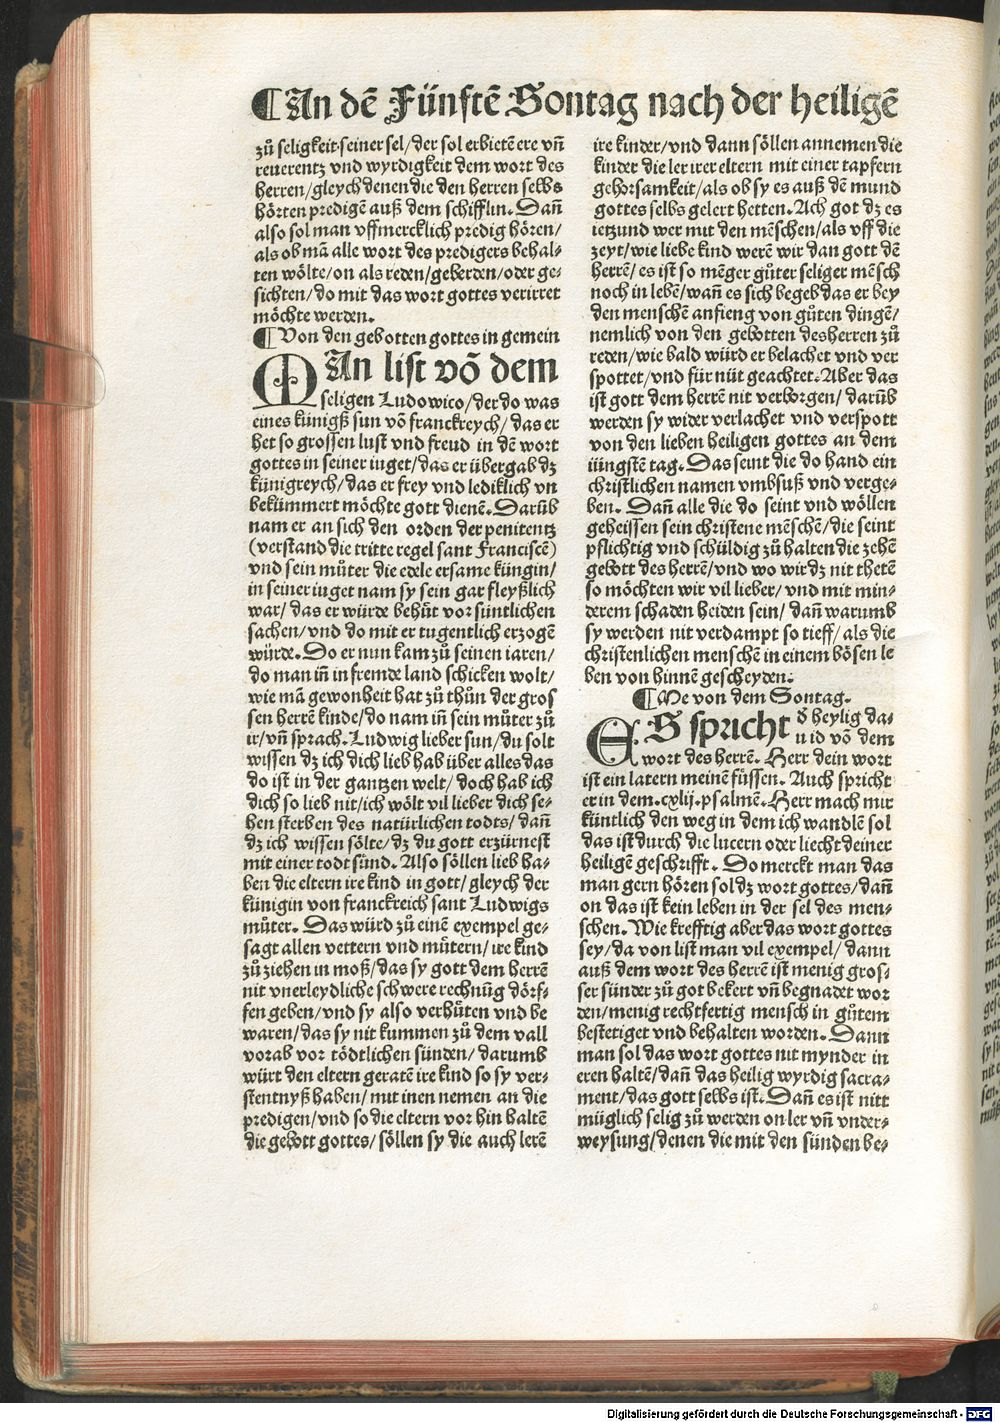 ¶An dē Fünftē Sontag nach der heiligē
zů seligkeit seiner sel/der sol erbietē ere vñ
reuerentz vnd wyrdigkeit dem wort des
herren/gleych denen die den herren selbs
hörten predigē auß dem schifflin. Dañ
also sol man vffmercklich predig hören/
als ob mā alle wort des predigers behal-
ten wölte/on als reden/geberden/oder ge-
sichten/do mit das wort gottes verirret
möchte werden.
¶Von den gebotten gottes in gemein
MAn list vō dem
seligen Ludowico/der do was
eines künigß sun vō franckreych/das er
het so grossen lust vnd freud in dē wort
gottes in seiner iuget/das er übergab dz
künigreych/das er frey vnd lediklich vn
bekümmert möchte gott dienē. Darüb
nam er an sich den orden der penitentz
(verstand die tritte regel sant Franciscē)
vnd sein můter die edele ersame küngin/
in seiner iuget nam sy sein gar fleyßlich
war/das er würde behůt vor süntlichen
sachen/vnd do mit er tugentlich erzogē
würde. Do er nun kam zů seinen iaren/
do man iñ in fremde land schicken wolt/
wie mā gewonheit hat zů thůn der gros
sen herrē kinde/do nam iñ sein můter zů
ir/vñ sprach. Ludwig lieber sun/du solt
wissen dz ich dich lieb hab über alles das
do ist in der gantzen welt/doch hab ich
dich so lieb nit/ich wölt vil lieber dich se-
hen sterben des natürlichen todts/dañ
dz ich wissen sölte/dz du gott erzürnest
mit einer todt sünd. Also söllen lieb ha-
ben die eltern ire kind in gott/gleych der
künigin von franckreich sant Ludwigs
můter. Das würd zů einē exempel ge-
sagt allen vettern vnd mütern/ire kind
zů ziehen in moß/das sy gott dem herrē
nit vnerleydliche schwere rechnūg dörf-
fen geben/vnd sy also verhüten vnd be
waren/das sy nit kummen zů dem vall
vorab vor tödtlichen sünden/darumb
würt den eltern geratē ire kind so sy ver-
stentnyß haben/mit inen nemen an die
predigen/vnd so die eltern vor hin haltē
die gebott gottes/söllen sy die auch lerē
ire kinder/vnd dann söllen annemen die
kinder die ler irer eltern mit einer tapfern
gehorsamkeit/als ob sy es auß dē mund
gottes selbs gelert hetten. Ach got dz es
ietzund wer mit den mēschen/als vff die
zeyt/wie liebe kind werē wir dan gott dē
herrē/es ist so mēger gůter seliger mēsch
noch in lebē/wañ es sich begeb das er bey
den menschē anfieng von gůten dingē/
nemlich von den gebotten des herren zů
reden/wie bald würd er belachet vnd ver
spottet/vnd für nüt geachtet. Aber das
ist gott dem herrē nit verborgen/darüb
werden sy wider verlachet vnd verspott
von den lieben heiligen gottes an dem
iüngstē tag. Das seint die do hand ein
christlichen namen vmbsuß vnd verge-
ben. Dañ alle die do seint vnd wöllen
geheissen sein christene mēschē/die seint
pflichtig vnd schüldig zů halten die zehē
gebott des herrē/vnd wo wir dz nit thetē
so möchten wir vil lieber/vnd mit min-
derem schaden heiden sein/dañ warumb
sy werden nit verdampt so tieff/als die
christenlichen menschē in einem bösen le
ben von hinnē gescheyden.
¶Me von dem Sontag.
ES spricht d̄ heylig da-
uid vō dem
wort des herrē. Herr dein wort
ist ein latern meinē füssen. Auch spricht
er in dem .cxlij. psalmē. Herr mach mir
küntlich den weg in dem ich wandlē sol
das ist durch die lucern oder liecht deiner
heiligē geschrifft. Do merckt man das
man gern hören sol dz wort gottes/dañ
on das ist kein leben in der sel des men-
schen. Wie krefftig aber das wort gottes
sey/da von list man vil exempel/dann
auß dem wort des herrē ist menig gros-
ser sünder zů got bekert vñ begnadet wor
den/menig rechtfertig mensch in gůtem
bestetiget vnd behalten worden. Dann
man sol das wort gottes nit mynder in
eren haltē/dañ das heilig wyrdig sacra-
ment/das gott selbs ist. Dañ es ist nitt
müglich selig zů werden on ler vñ vnder-
weysung/denen die mit den sünden be-
Digitalisierung gefördert durch die Deutsche Forschungsgemeinschaft - DFG